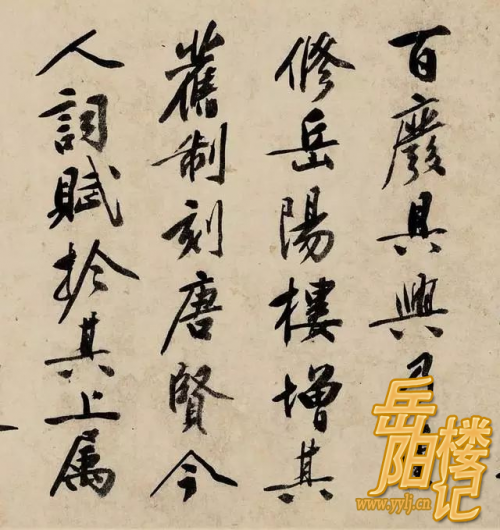 百廢具興乃重
修岳陽樓增其
舊制刻唐賢今
人詞賦於其上属
岳阳楼记
www.yylj.cn